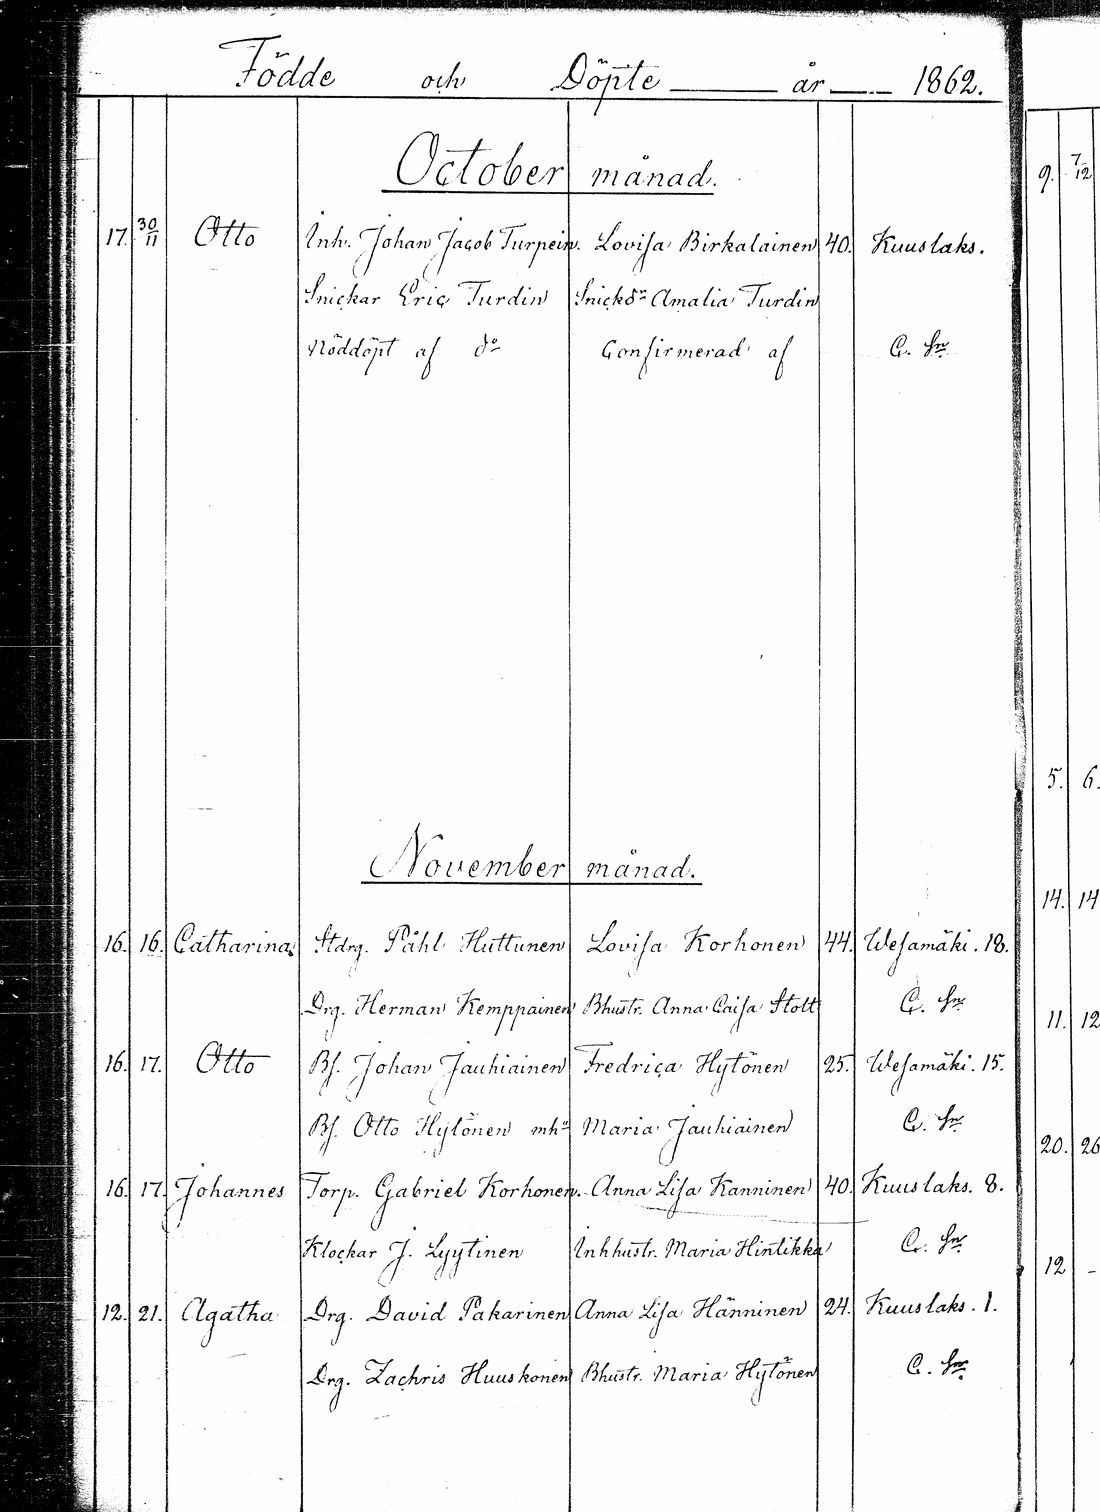 Födde och Döpte år 1862.
October månad.
17. 30/11 Otto Inh. Johan Jacob Turpein. Lovisa Birkalainen 40. Kuuslaks.
Snickar Eric Turdin Snickdr Amalia Turdin
Nöddöpt af do Confirmerad af C.
November månad.
16. 16. Catharina Stdrg. Påhl Huttunen Lovisa Korhonen 44. Wesamäki. 18.
Drg. Herman Kemppainen Bhustr. Anna Caisa Stolt C.
16. 17. Otto Bs. Johan Jauhiainen Fredrica Hytönen 25. Wesamäki. 15.
Bs. Otto Hytönen mhu Maria Jauhiainen C.
16. 17. Johannes Torp. Gabriel Korhonen. Anna Lisa Kanninen 40. Kuuslaks. 8.
Klockar J. Lyytinen Inhhustr. Maria Hintikka C.
12. 21. Agatha Drg. David Pakarinen Anna Lisa Hänninen 24. Kuuslaks. 1.
Drg. Zachris Huuskonen Bhustr. Maria Hytönen C.
9. 7/12
5. 6.
14. 14
11. 12
20. 26
12